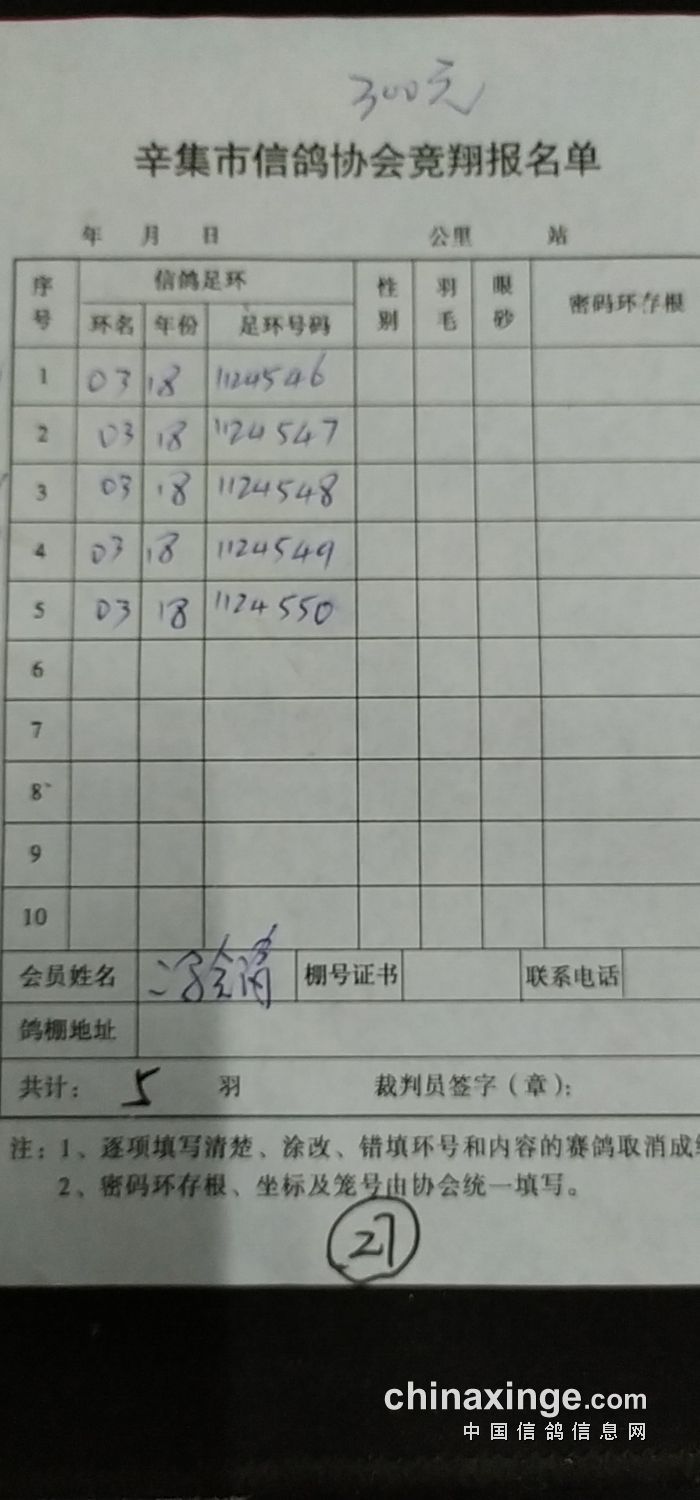 300元
辛集市信鸽协会竞翔报名单
年 月 日 公里 站
序号 信鸽足环 性别 羽毛 眼砂 密码环存根
环名 年份 足环号码
1 03 18 1124546
2 03 18 1124547
3 03 18 1124548
4 03 18 1124549
5 03 18 1124550
6
7
8
9
10
会员姓名 棚号证书 联系电话
鸽棚地址
共计: 5 羽 裁判员签字(章):
注:1、逐项填写清楚、涂改、错填环号和内容的赛鸽取消成
2、密码环存根、坐标及笼号由协会统一填写。
27
chinaxinge.com
中国信鸽信息网